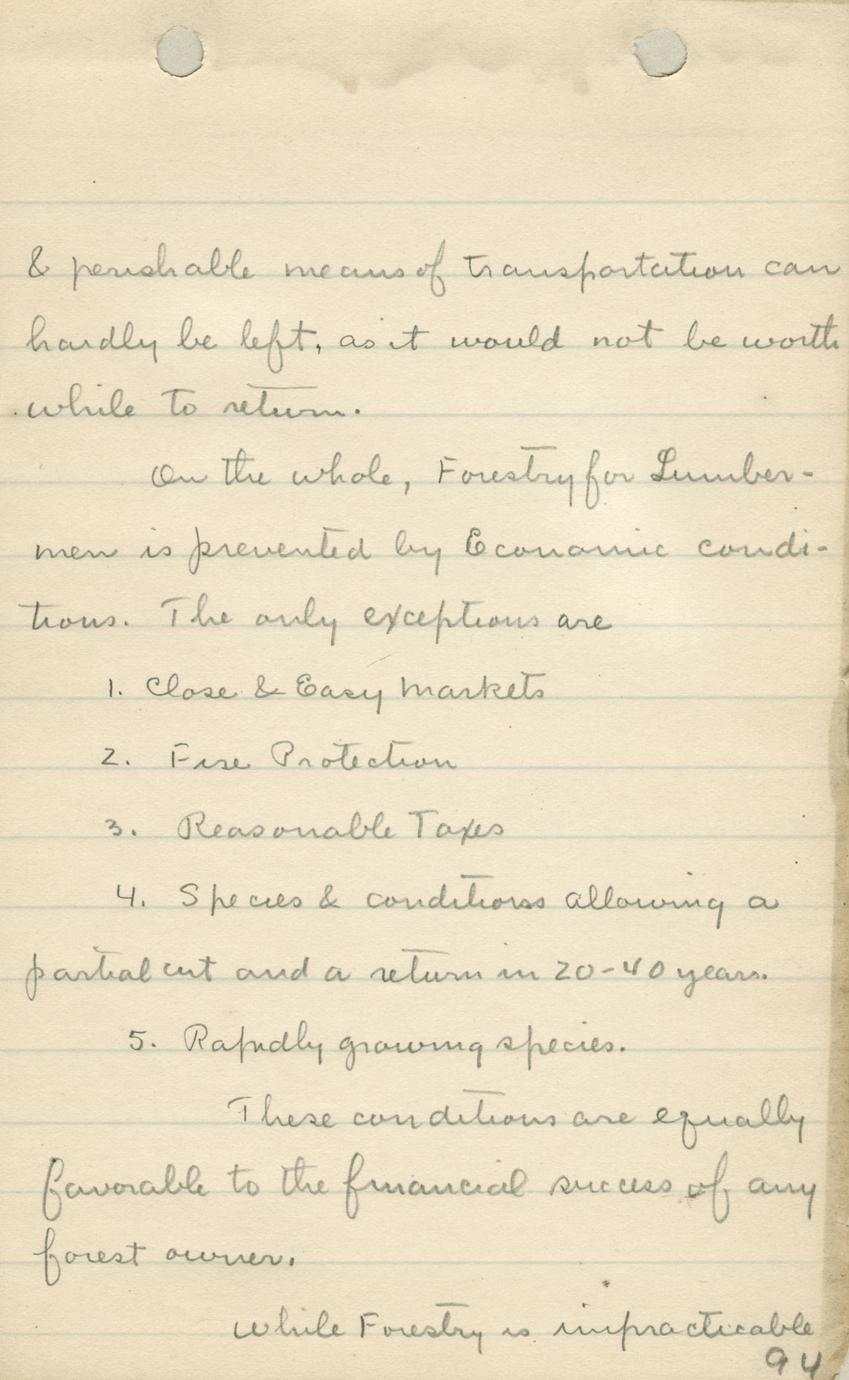 & perishable means of transportation can
hardly be left, as it would not be worth
while to return.
On the whole, Forestry for Lumber-
men is prevented by Economic condi-
tions. The only exceptions are
1. Close & Easy Markets
2. Fire Protection
3. Reasonable Taxes
4. Species & conditions allowing a
partial cut and a return in 20-40 years.
5. Rapidly growing species.
These conditions are equally
favorable to the financial success of any
forest owner.
While Forestry is impracticable
94.